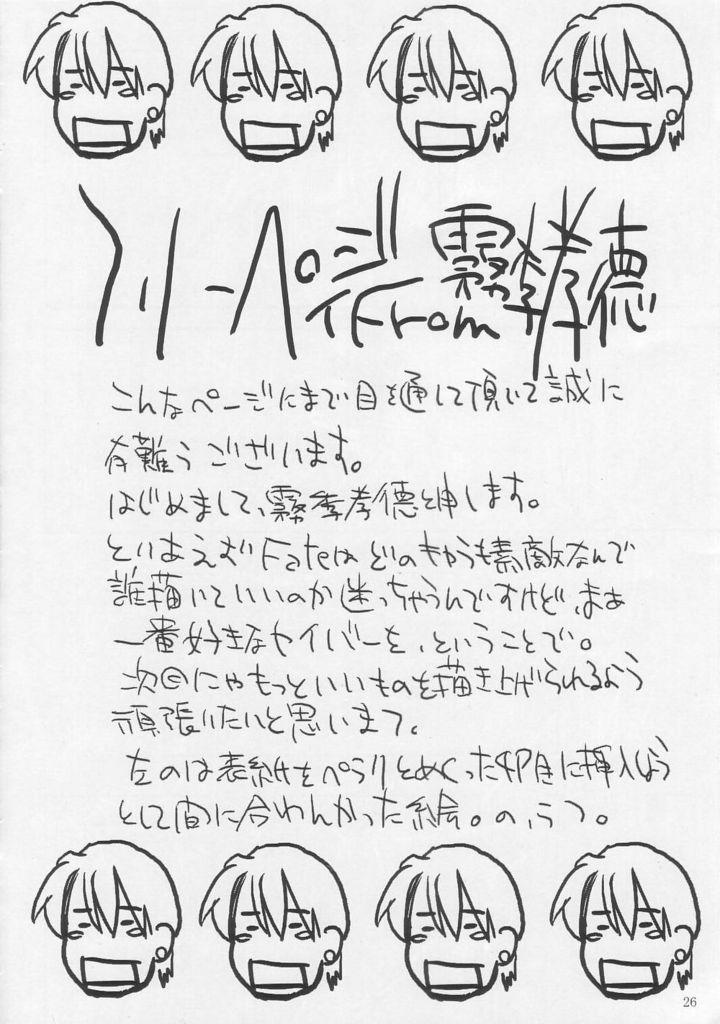 フリーペーパー From 霧季孝徳
こんなページにまで目を通して頂いて誠に
有難うございます。
はじめまして、霧季孝徳と申します。
とりあえず Fateは どのキャラも素敵なんで
誰描いていいのか迷っちゃうんですけど、まぁ
一番好きなセイバーを、ということで。
次回にゃもっといいものを描き上げられるよう
頑張りたいと思いまス。
左のは表紙をペラリとめくった中P目に挿入しよう
として間に合わんかった絵。の、うつ。
26